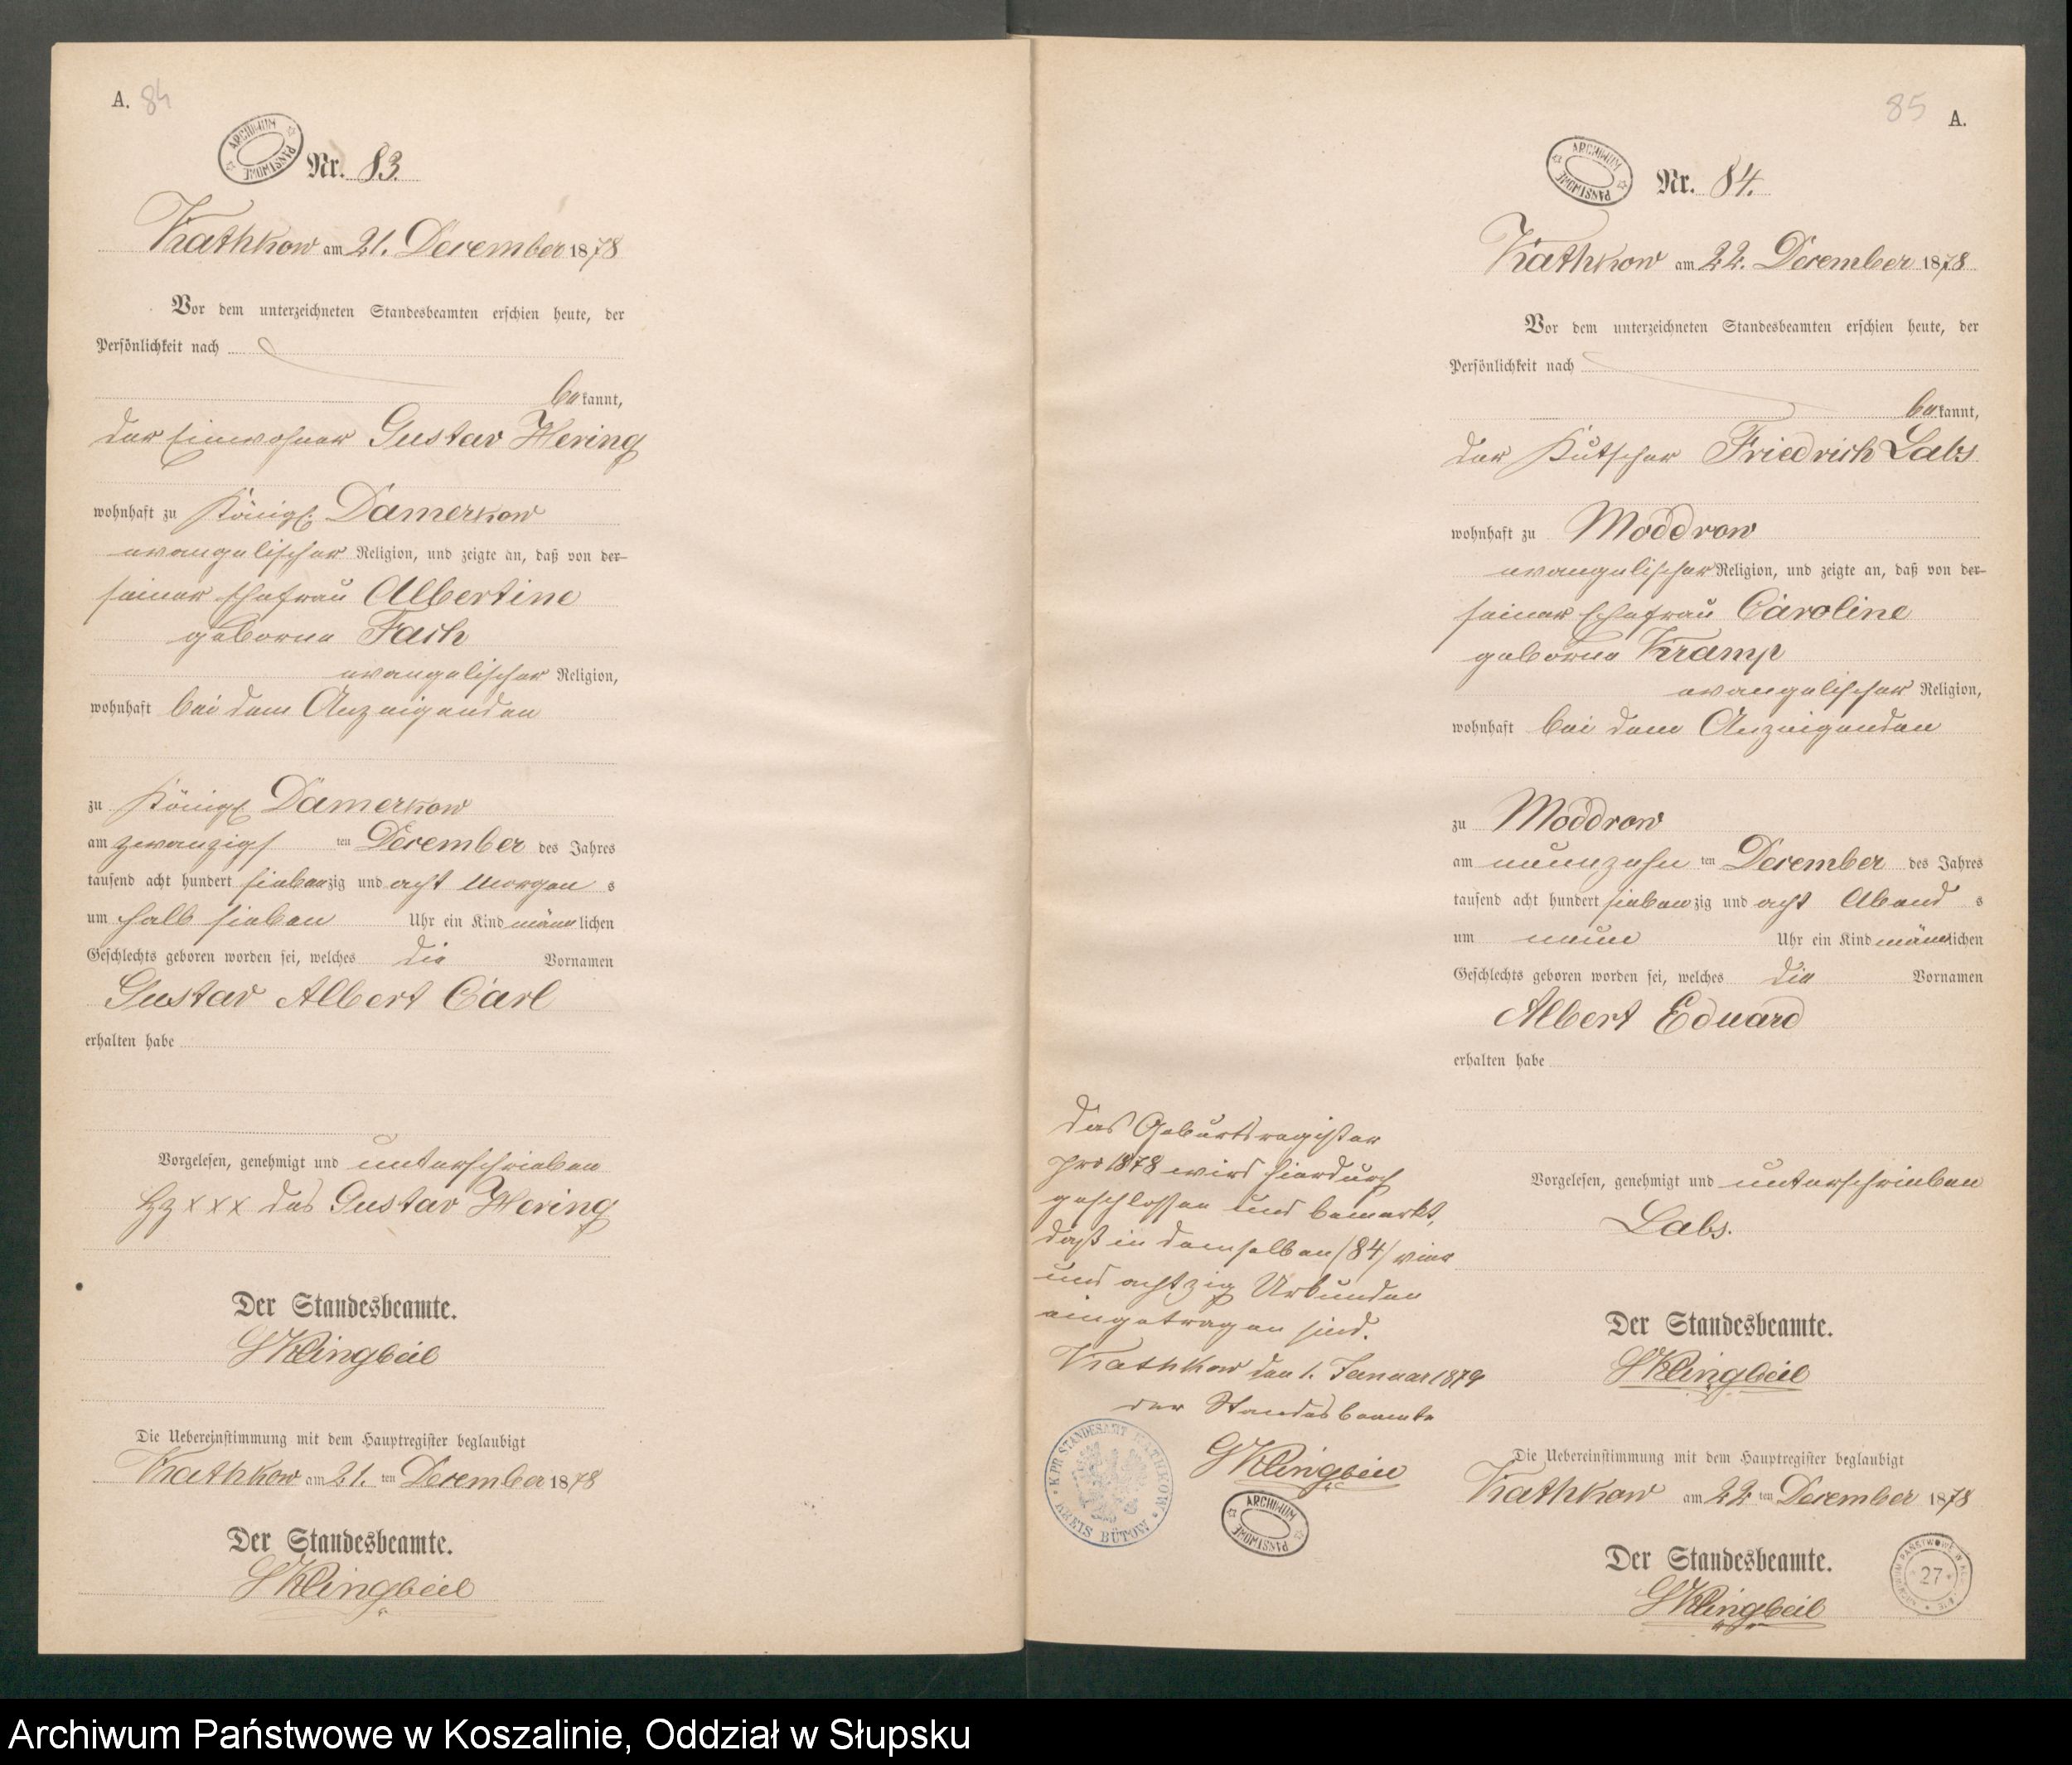 A. 84
ARCHIWUM PAŃSTWOWE
Nr. 83.
Kathkow am 21. December 1878
Vor dem unterzeichneten Standesbeamten erschien heute, der
Persönlichkeit nach
bekannt,
der Einwohner Gustav Hering
wohnhaft zu Königl. Damerkow
evangelischer Religion, und zeigte an, daß von der
seiner Ehefrau Albertine
geborne Fach
evangelischer Religion,
wohnhaft bei dem Anzeigenden
zu Königl Damerkow
am zwanzigs ten December des Jahres
tausend acht hundert siebenzig und acht Morgen s
um halb sieben Uhr ein Kind männlichen
Geschlechts geboren worden sei, welches die Vornamen
Gustav Albert Carl
erhalten habe
Vorgelesen, genehmigt und unterschrieben
Hz x x x des Gustav Hering
Der Standesbeamte.
Klingbeil
Die Uebereinstimmung mit dem Hauptregister beglaubigt
Kathkow am 21. ten December 1878
Der Standesbeamte.
Klingbeil
85 A.
ARCHIWUM PAŃSTWOWE
Nr. 84.
Kathkow am 22. December 1878
Vor dem unterzeichneten Standesbeamten erschien heute, der
Persönlichkeit nach
bekannt,
der Kutscher Friedrich Labs
wohnhaft zu Moddrow
evangelischer Religion, und zeigte an, daß von der
seiner Ehefrau Caroline
geborne Kramp
evangelischer Religion,
wohnhaft bei dem Anzeigenden
zu Moddrow
am neunzehn ten December des Jahres
tausend acht hundert siebenzig und acht Abend s
um neun Uhr ein Kind männlichen
Geschlechts geboren worden sei, welches die Vornamen
Albert Eduard
erhalten habe
Vorgelesen, genehmigt und unterschrieben
Labs.
Der Standesbeamte.
Klingbeil
Die Uebereinstimmung mit dem Hauptregister beglaubigt
Kathkow am 22 ten December 1878
Der Standesbeamte.
Klingbeil
Das Geburtsregister
pro 1878 wird hierdurch
geschlossen und bemerkt,
daß in demselben /84/ vier
und achtzig Urkunden
eingetragen sind.
Kathkow den 1. Januar 1879
der Standesbeamte
Klingbeil
K. PR. STANDESAMT KATHKOW KREIS BÜTOW
ARCHIWUM PAŃSTWOWE
27
Archiwum Państwowe w Koszalinie, Oddział w Słupsku